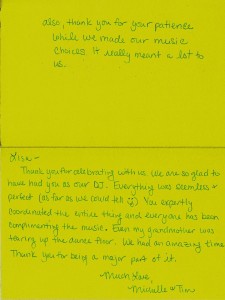 also, thank you for your patience
while we made our music
choices. It really meant a lot to
us.
Lisa~
Thank you for celebrating with us. We are so glad to
have had you as our DJ. Everything was seamless +
perfect (as far as we could tell ☺) You expertly
coordinated the entire thing and everyone has been
complimenting the music. Even my grandmother was
tearing up the dance floor. We had an amazing time.
Thank you for being a major part of it.
~Much Love,
Michelle + Tim